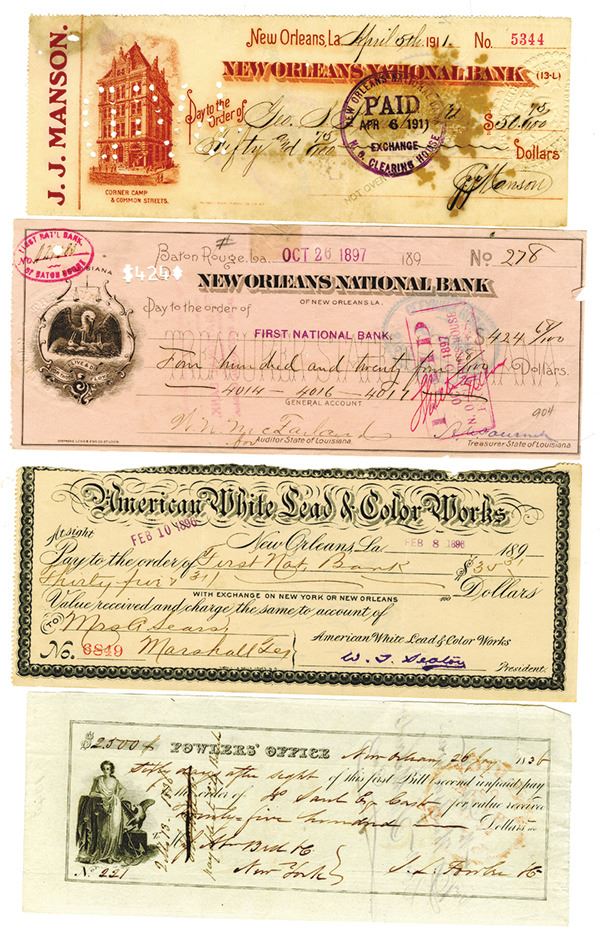 J. J. MANSON.
New Orleans, La. April 5th 1911. No. 5344
NEW ORLEANS NATIONAL BANK (13-L)
Pay to the order of Geo. S. $50.75/100
Fifty and 75/100 Dollars
NEW ORLEANS NATIONAL
PAID
APR 6 1911
EXCHANGE
N. O. CLEARING HOUSE
NOT OVER
JJ Manson
CORNER CAMP
& COMMON STREETS.
FIRST NAT'L BANK
No.
OF BATON ROUGE
LOUISIANA
$424$
Baton Rouge, La. OCT 26 1897 189 No 278
NEW ORLEANS NATIONAL BANK
OF NEW ORLEANS LA.
Pay to the order of
FIRST NATIONAL BANK. $424 68/100
Four hundred and twenty four 68/100 Dollars.
4014 - 4016 - 4011
GENERAL ACCOUNT
904
W. W. McFarland
for Auditor State of Louisiana.
Treasurer State of Louisiana
American White Lead & Color Works
At sight FEB 10 1896 New Orleans, La. FEB 8 1896 189
Pay to the order of First Nat. Bank $35 31
Thirty five & 31 Dollars
WITH EXCHANGE ON NEW YORK OR NEW ORLEANS
Value received and charge the same to account of
(TO) Mrs A Sears
No. 6849 Marshall Tex
American White Lead & Color Works
President.
$2500 FOWLERS' OFFICE New Orleans 26 1836
Sixty days after sight of this first Bill second unpaid pay
to the order of Cash for value received
Twenty five hundred Dollars
New York
No. 221 S. L. Fowler